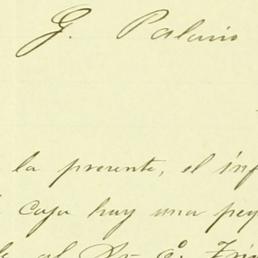 G. Palacio
la presente, el inf
caja hay una peq
al Dr. E.